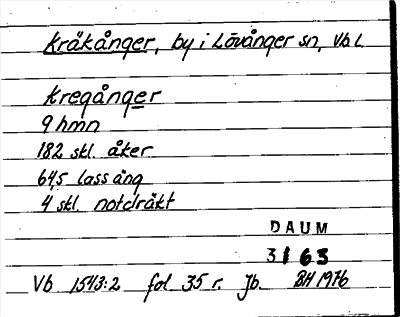 Kråkånger, by i Lövånger sn, Vb l.
kregånger
9 hmn
182 skl. åker
64,5 lass äng
4 skl. notdräkt
DAUM
3163
Vb 1543:2 fol. 35 r. Jb. BH 1976